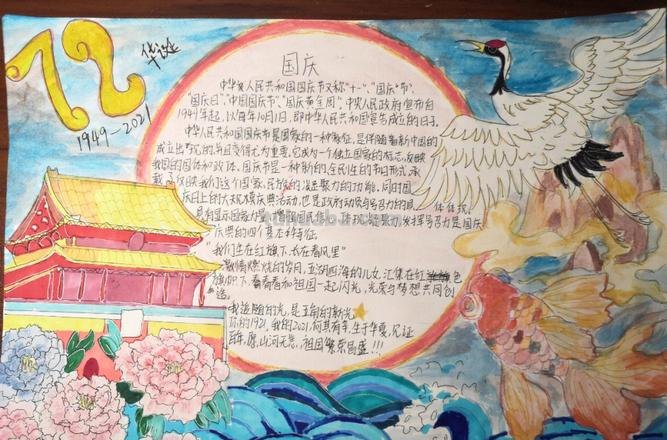 72
华诞
1949-2021
国庆
中华人民共和国国庆节又称"十一"、"国庆节"、
"国庆日"、"中国国庆节"、"国庆黄金周"。中央人民政府宣布自
1949年起,以每年10月1日,即中华人民共和国宣告成立的日子。
中华人民共和国国庆节是国家的一种象征,是伴随着新中国的
成立出现的,并且变得尤为重要。它成为一个独立国家的标志,反映
我国的国体和政体。国庆节是一种新的、全民性的节日形式,承
载了反映我们这个国家、民族的凝聚力的功能。同时国
庆日上的大规模庆典活动,也是政府动员与号召力的具体体现。
具有显示国家力量、增强国民信心、体现凝聚力、发挥号召力是国庆
庆典的四个基本特征
"我们生在红旗下,长在春风里"
激情燃烧的岁月,五湖四海的儿女,汇集在红色
旗帜下,青春和祖国一起闪光,光荣与梦想共同创
造。
我追随的光,是五角的星光
你的1921,我的2021,何其有幸,生于华夏,见证
百年,愿山河无恙,祖国繁荣昌盛!!!